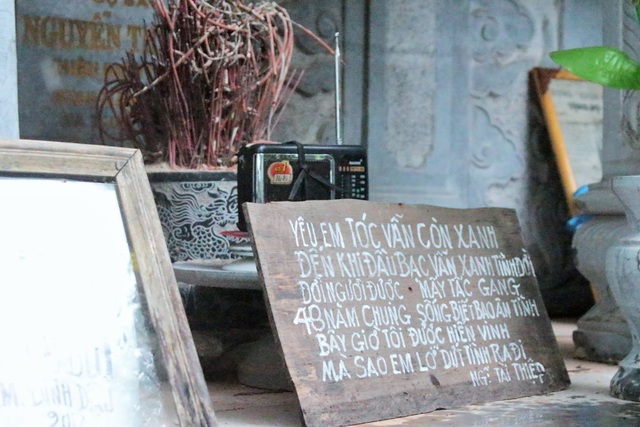 NGUYỄN
YÊU EM TÓC VẪN CÒN XANH
ĐẾN KHI ĐẦU BẠC VẪN XANH TÌNH ĐỜI
ĐỜI NGƯỜI ĐƯỢC MẤY TẤC GANG
48 NĂM CHUNG SỐNG BIẾT BAO ÂN TÌNH
BÂY GIỜ TÔI ĐƯỢC HIỂN VINH
MÀ SAO EM LỠ DỨT TÌNH RA ĐI
NG~ TÀI THIỆP
ĐINH DẬU